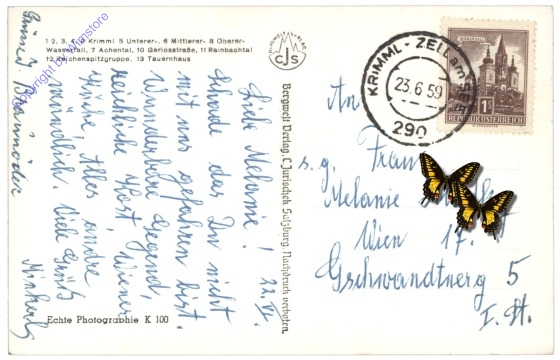 1 2, 3, 4, Krimml 5 Unterer-, 6 Mittlerer- 8 Oberer-
Wasserfall, 7 Achental, 10 Gerlosstraße, 11 Rainbachtal
12 Reichenspitzgruppe, 13 Tauernhaus
BERGWELT VERLAG
CJS
Copyright by Minstore
22. VI.
Liebe Melanie!
Schade das Du nicht
mit uns gefahren bist.
Wunderbare Gegend,
reichliche Kost, Wiener
Küche, Alles andre
mündlich. Viele Grüße
Echte Photographie K 100
Bergwelt Verlag, C. Jurischek Salzburg. Nachdruck verboten.
KRIMML - ZELL am SEE
23.6.59
290
1S
REPUBLIK ÖSTERREICH
An
s. g. Frau
Melanie
Wien 17.
Gschwandtnerg 5
I. St.